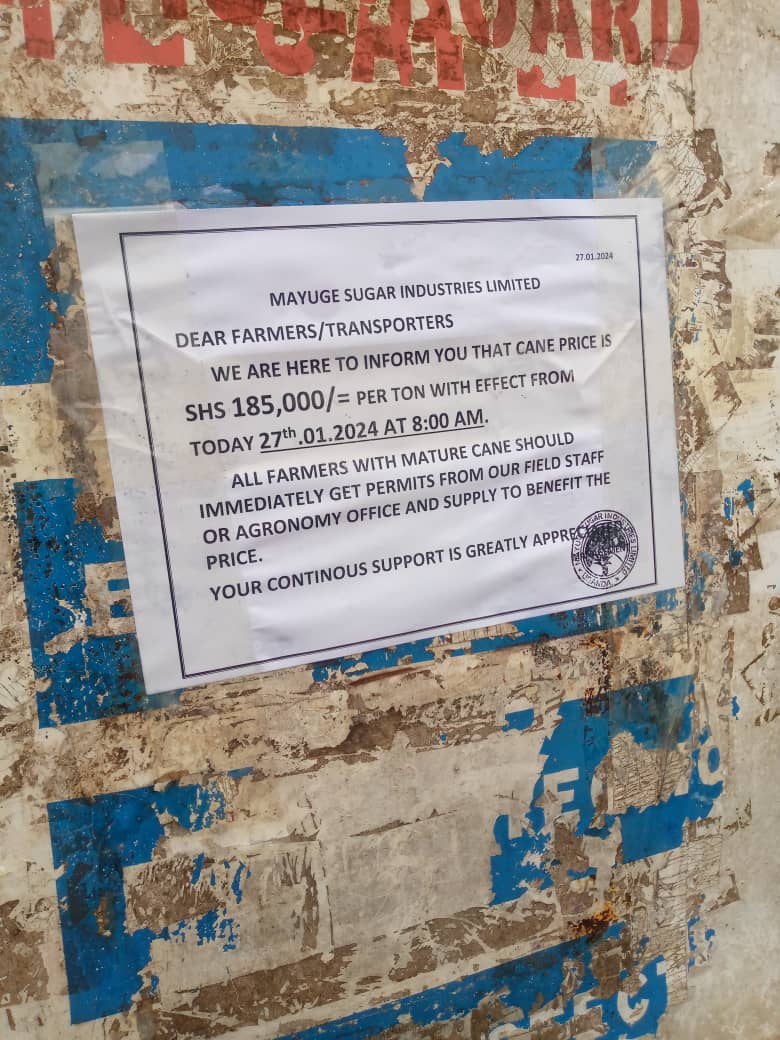 27.01.2024
MAYUGE SUGAR INDUSTRIES LIMITED
DEAR FARMERS/TRANSPORTERS
WE ARE HERE TO INFORM YOU THAT CANE PRICE IS
SHS 185,000/= PER TON WITH EFFECT FROM
TODAY 27th.01.2024 AT 8:00 AM.
ALL FARMERS WITH MATURE CANE SHOULD
IMMEDIATELY GET PERMITS FROM OUR FIELD STAFF
OR AGRONOMY OFFICE AND SUPPLY TO BENEFIT THE
PRICE.
YOUR CONTINOUS SUPPORT IS GREATLY
UGANDA